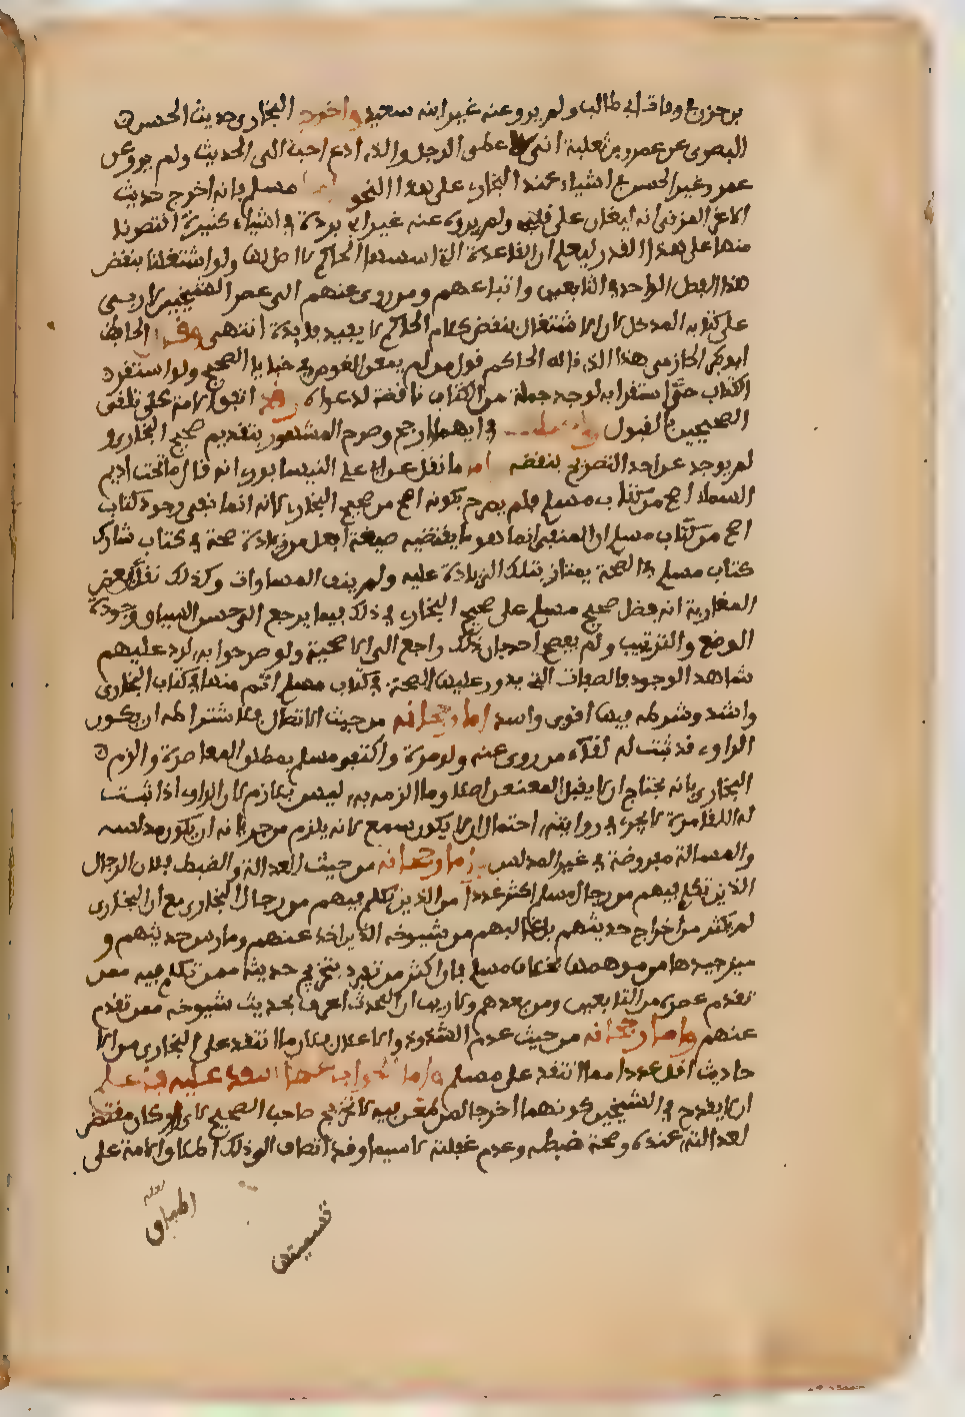 بن حزن في وفاة ابي طالب ولم يرو عنه غير ابنه سعيد واخرج البخاري حديث الحسن
البصري عن عمرو بن تغلب اني لاعطي الرجل والذي ادع احب الي الحديث ولم يرو عن
عمرو غير الحسن في اشياء عند البخاري على هذا النحو مسلم فانه اخرج حديث
الاغر المزني انه ليغان على قلبي ولم يرو عنه غير ابي بردة في اشياء كثيرة اقتصرنا
منها على هذا القدر ليعلم ان القاعدة التي اسسها الحاكم لا اصل لها ولو اشتغلنا بنقض
هذا الفصل الواحد في التابعين واتباعهم ومن روى عنهم الى عصر الشيخين لاربى
على كتابه المدخل الا ان الاشتغال بنقض كلام الحاكم لا يفيد فايدة انتهى وقال الحافظ
ابو بكر الحازمي هذا الذي قاله الحاكم قول من لم يمعن الغوص في خبايا الصحيح ولو استقرا
الكتاب حق استقرايه لوجد جملة من الكتاب ناقضة لدعواه وقد اتفق الامة على تلقي
الصحيحين بالقبول في ايهما ارجح وصرح الجمهور بتقديم صحيح البخاري و
لم يوجد عن احد التصريح بنقضه اما ما نقل عن ابي علي النيسابوري انه قال ما تحت اديم
السماء اصح من كتاب مسلم فلم يصرح بكونه اصح من صحيح البخاري لانه انما نفى وجود كتاب
اصح من كتاب مسلم اذ المنفي انما هو ما يقتضيه صيغة افعل من زيادة صحة في كتاب شارك
كتاب مسلم في الصحة يمتاز بتلك الزيادة عليه ولم ينف المساوات وكذلك نقل بعض
المغاربة انه فضل صحيح مسلم على صحيح البخاري فذلك فيما يرجع الى حسن السياق وجودة
الوضع والترتيب ولم يفصح احد بان ذلك راجع الى الاصحية ولو صرحوا به لرد عليهم
شاهد الوجود فالصفات التي يدور عليها الصحة في كتاب مسلم اتم منها في كتاب البخاري
واشد وشرطه فيها اقوى واسد اما رجحانه من حيث الاتصال فلاشتراطه ان يكون
الراوي قد ثبت له لقاء من روى عنه ولو مرة واكتفى مسلم بمطلق المعاصرة والزم
البخاري بانه يحتاج ان لا يقبل المعنعن اصلا وما الزمه به ليس بلازم لان الراوي اذا ثبت
له اللقا مرة لا يجري في روايته احتمال ان لا يكون سمع لانه يلزم من جريانه ان يكون مدلسا
والمسالة مفروضة في غير المدلس واما رجحانه من حيث العدالة والضبط فلان الرجال
الذين تكلم فيهم من رجال مسلم اكثر عددا من الذين تكلم فيهم من رجال البخاري مع ان البخاري
لم يكثر من اخراج حديثهم بل غالبهم من شيوخه الذين اخذ عنهم ومارس حديثهم و
ميز جيدها من موهومها بخلاف مسلم فان اكثر من تفرد بتخريج حديثه ممن تكلم فيه ممن
تقدم عصره من التابعين ومن بعدهم ولا ريب ان المحدث اعرف بحديث شيوخه ممن تقدم
عنهم واما رجحانه من حيث عدم الشذوذ والاعلال فلان ما انتقد على البخاري من الا
حاديث اقل عددا مما انتقد على مسلم واما الجواب عما انتقد عليه فاعلم
ان لا يقدح في الشيخين كونهما اخرجا لمن طعن فيه لان تخريج صاحب الصحيح لاي راو كان مقتض
لعدالته عنده وصحة ضبطه وعدم غفلته لا سيما وقد انضاف الى ذلك اطباق الامة على
اطباق
تسميتهما